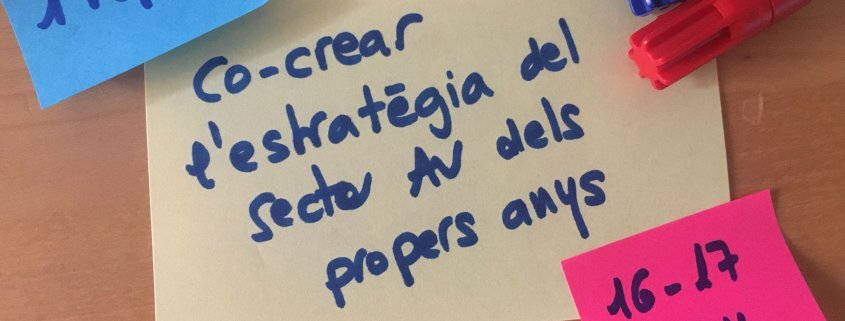 Co-crear
l'estratēgia del
sector AV dels
propers anys
16-17